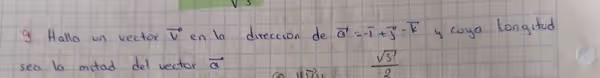 √3
9 Halla un vector v⃗ en la dirección de a⃗ = -i⃗ + j⃗ - k⃗ y cuya longitud
sea la mitad del vector a⃗ √3/2